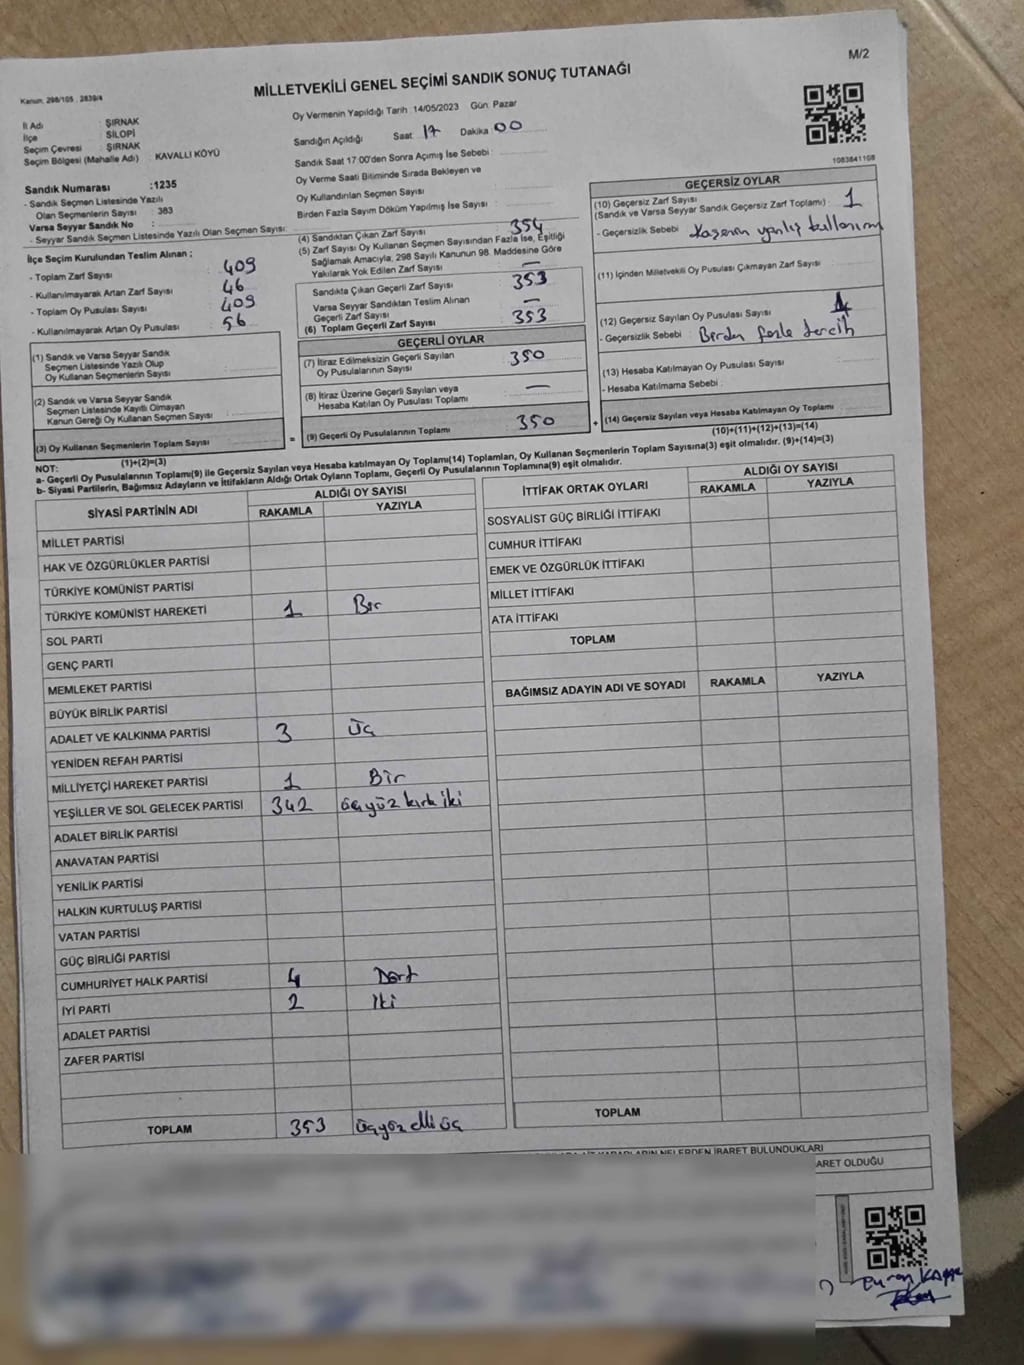 M/2
MİLLETVEKİLİ GENEL SEÇİMİ SANDIK SONUÇ TUTANAĞI
Kanun, 298/105 , 2839/4
İl Adı : ŞIRNAK
İlçe : SİLOPİ
Seçim Çevresi : ŞIRNAK
Seçim Bölgesi (Mahalle Adı) KAVALLI KÖYÜ
Sandık Numarası :1235
- Sandık Seçmen Listesinde Yazılı
Olan Seçmenlerin Sayısı : 383
Varsa Seyyar Sandık No :
- Seyyar Sandık Seçmen Listesinde Yazılı Olan Seçmen Sayısı:
İlçe Seçim Kurulundan Teslim Alınan ;
- Toplam Zarf Sayısı : 409
- Kullanılmayarak Artan Zarf Sayısı : 46
- Toplam Oy Pusulası Sayısı : 409
- Kullanılmayarak Artan Oy Pusulası : 56
(1) Sandık ve Varsa Seyyar Sandık
Seçmen Listesinde Yazılı Olup
Oy Kullanan Seçmenlerin Sayısı :
(2) Sandık ve Varsa Seyyar Sandık
Seçmen Listesinde Kayıtlı Olmayan
Kanun Gereği Oy Kullanan Seçmen Sayısı :
(3) Oy Kullanan Seçmenlerin Toplam Sayısı :
(1)+(2)=(3)
Oy Vermenin Yapıldığı Tarih : 14/05/2023 Gün: Pazar
Sandığın Açıldığı Saat: 17 Dakika: 00
Sandık Saat 17:00'den Sonra Açımış İse Sebebi :
Oy Verme Saati Bitiminde Sırada Bekleyen ve
Oy Kullandırılan Seçmen Sayısı :
Birden Fazla Sayım Döküm Yapılmış İse Sayısı :
(4) Sandıktan Çıkan Zarf Sayısı : 354
(5) Zarf Sayısı Oy Kullanan Seçmen Sayısından Fazla İse, Eşitliği
Sağlamak Amacıyla, 298 Sayılı Kanunun 98. Maddesine Göre
Yakılarak Yok Edilen Zarf Sayısı : —
Sandıkta Çıkan Geçerli Zarf Sayısı : 353
Varsa Seyyar Sandıktan Teslim Alınan
Geçerli Zarf Sayısı : —
(6) Toplam Geçerli Zarf Sayısı : 353
GEÇERLİ OYLAR
(7) İtiraz Edilmeksizin Geçerli Sayılan
Oy Pusulalarının Sayısı : 350
(8) İtiraz Üzerine Geçerli Sayılan veya
Hesaba Katılan Oy Pusulası Toplamı : —
= (9) Geçerli Oy Pusulalarının Toplamı : 350 +
1083841108
GEÇERSİZ OYLAR
(10) Geçersiz Zarf Sayısı
(Sandık ve Varsa Seyyar Sandık Geçersiz Zarf Toplamı) : 1
- Geçersizlik Sebebi : Kaşenin yanlış kullanımı
(11) İçinden Milletvekili Oy Pusulası Çıkmayan Zarf Sayısı :
(12) Geçersiz Sayılan Oy Pusulası Sayısı :
- Geçersizlik Sebebi : Birden fazla tercih
(13) Hesaba Katılmayan Oy Pusulası Sayısı :
- Hesaba Katılmama Sebebi :
(14) Geçersiz Sayılan veya Hesaba Katılmayan Oy Toplamı :
(10)+(11)+(12)+(13)=(14)
NOT:
a- Geçerli Oy Pusulalarının Toplamı(9) ile Geçersiz Sayılan veya Hesaba katılmayan Oy Toplamı(14) Toplamları, Oy Kullanan Seçmenlerin Toplam Sayısına(3) eşit olmalıdır. (9)+(14)=(3)
b- Siyasi Partilerin, Bağımsız Adayların ve İttifakların Aldığı Ortak Oyların Toplamı, Geçerli Oy Pusulalarının Toplamına(9) eşit olmalıdır.
SİYASİ PARTİNİN ADI ALDIĞI OY SAYISI
RAKAMLA YAZIYLA
MİLLET PARTİSİ
HAK VE ÖZGÜRLÜKLER PARTİSİ
TÜRKİYE KOMÜNİST PARTİSİ
TÜRKİYE KOMÜNİST HAREKETİ 1 Bir
SOL PARTİ
GENÇ PARTİ
MEMLEKET PARTİSİ
BÜYÜK BİRLİK PARTİSİ
ADALET VE KALKINMA PARTİSİ 3 Üç
YENİDEN REFAH PARTİSİ
MİLLİYETÇİ HAREKET PARTİSİ 1 Bir
YEŞİLLER VE SOL GELECEK PARTİSİ 342 üçyüz kırk iki
ADALET BİRLİK PARTİSİ
ANAVATAN PARTİSİ
YENİLİK PARTİSİ
HALKIN KURTULUŞ PARTİSİ
VATAN PARTİSİ
GÜÇ BİRLİĞİ PARTİSİ
CUMHURİYET HALK PARTİSİ 4 Dört
İYİ PARTİ 2 İki
ADALET PARTİSİ
ZAFER PARTİSİ
TOPLAM 353 üçyüz elli üç
İTTİFAK ORTAK OYLARI ALDIĞI OY SAYISI
RAKAMLA YAZIYLA
SOSYALİST GÜÇ BİRLİĞİ İTTİFAKI
CUMHUR İTTİFAKI
EMEK VE ÖZGÜRLÜK İTTİFAKI
MİLLET İTTİFAKI
ATA İTTİFAKI
TOPLAM
BAĞIMSIZ ADAYIN ADI VE SOYADI RAKAMLA YAZIYLA
TOPLAM
NELERDEN İBARET BULUNDUKLARI
ARET OLDUĞU